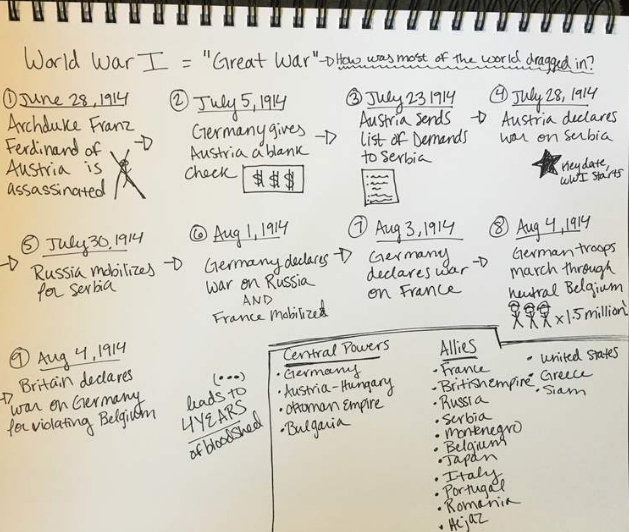 World War I = "Great War" → How was most of the world dragged in?
① June 28, 1914
Archduke Franz
Ferdinand of
Austria is
assassinated
② July 5, 1914
Germany gives
Austria a blank
check $ $ $
③ July 23 1914
Austria sends
list of Demands
to Serbia
④ July 28, 1914
Austria declares
war on Serbia
Key date,
WWI starts
⑤ July 30, 1914
Russia mobilizes
for Serbia
⑥ Aug 1, 1914
Germany declares
war on Russia
AND
France mobilized
⑦ Aug 3, 1914
Germany
declares war
on France
⑧ Aug 4, 1914
German troops
march through
neutral Belgium
x 1.5 million
⑨ Aug 4, 1914
Britain declares
war on Germany
for violating Belgium
(...)
leads to
4 YEARS
of bloodshed
Central Powers
• Germany
• Austria-Hungary
• Ottoman Empire
• Bulgaria
Allies
• France
• British empire
• Russia
• Serbia
• Montenegro
• Belgium
• Japan
• Italy
• Portugal
• Romania
• Hejaz
• United States
• Greece
• Siam